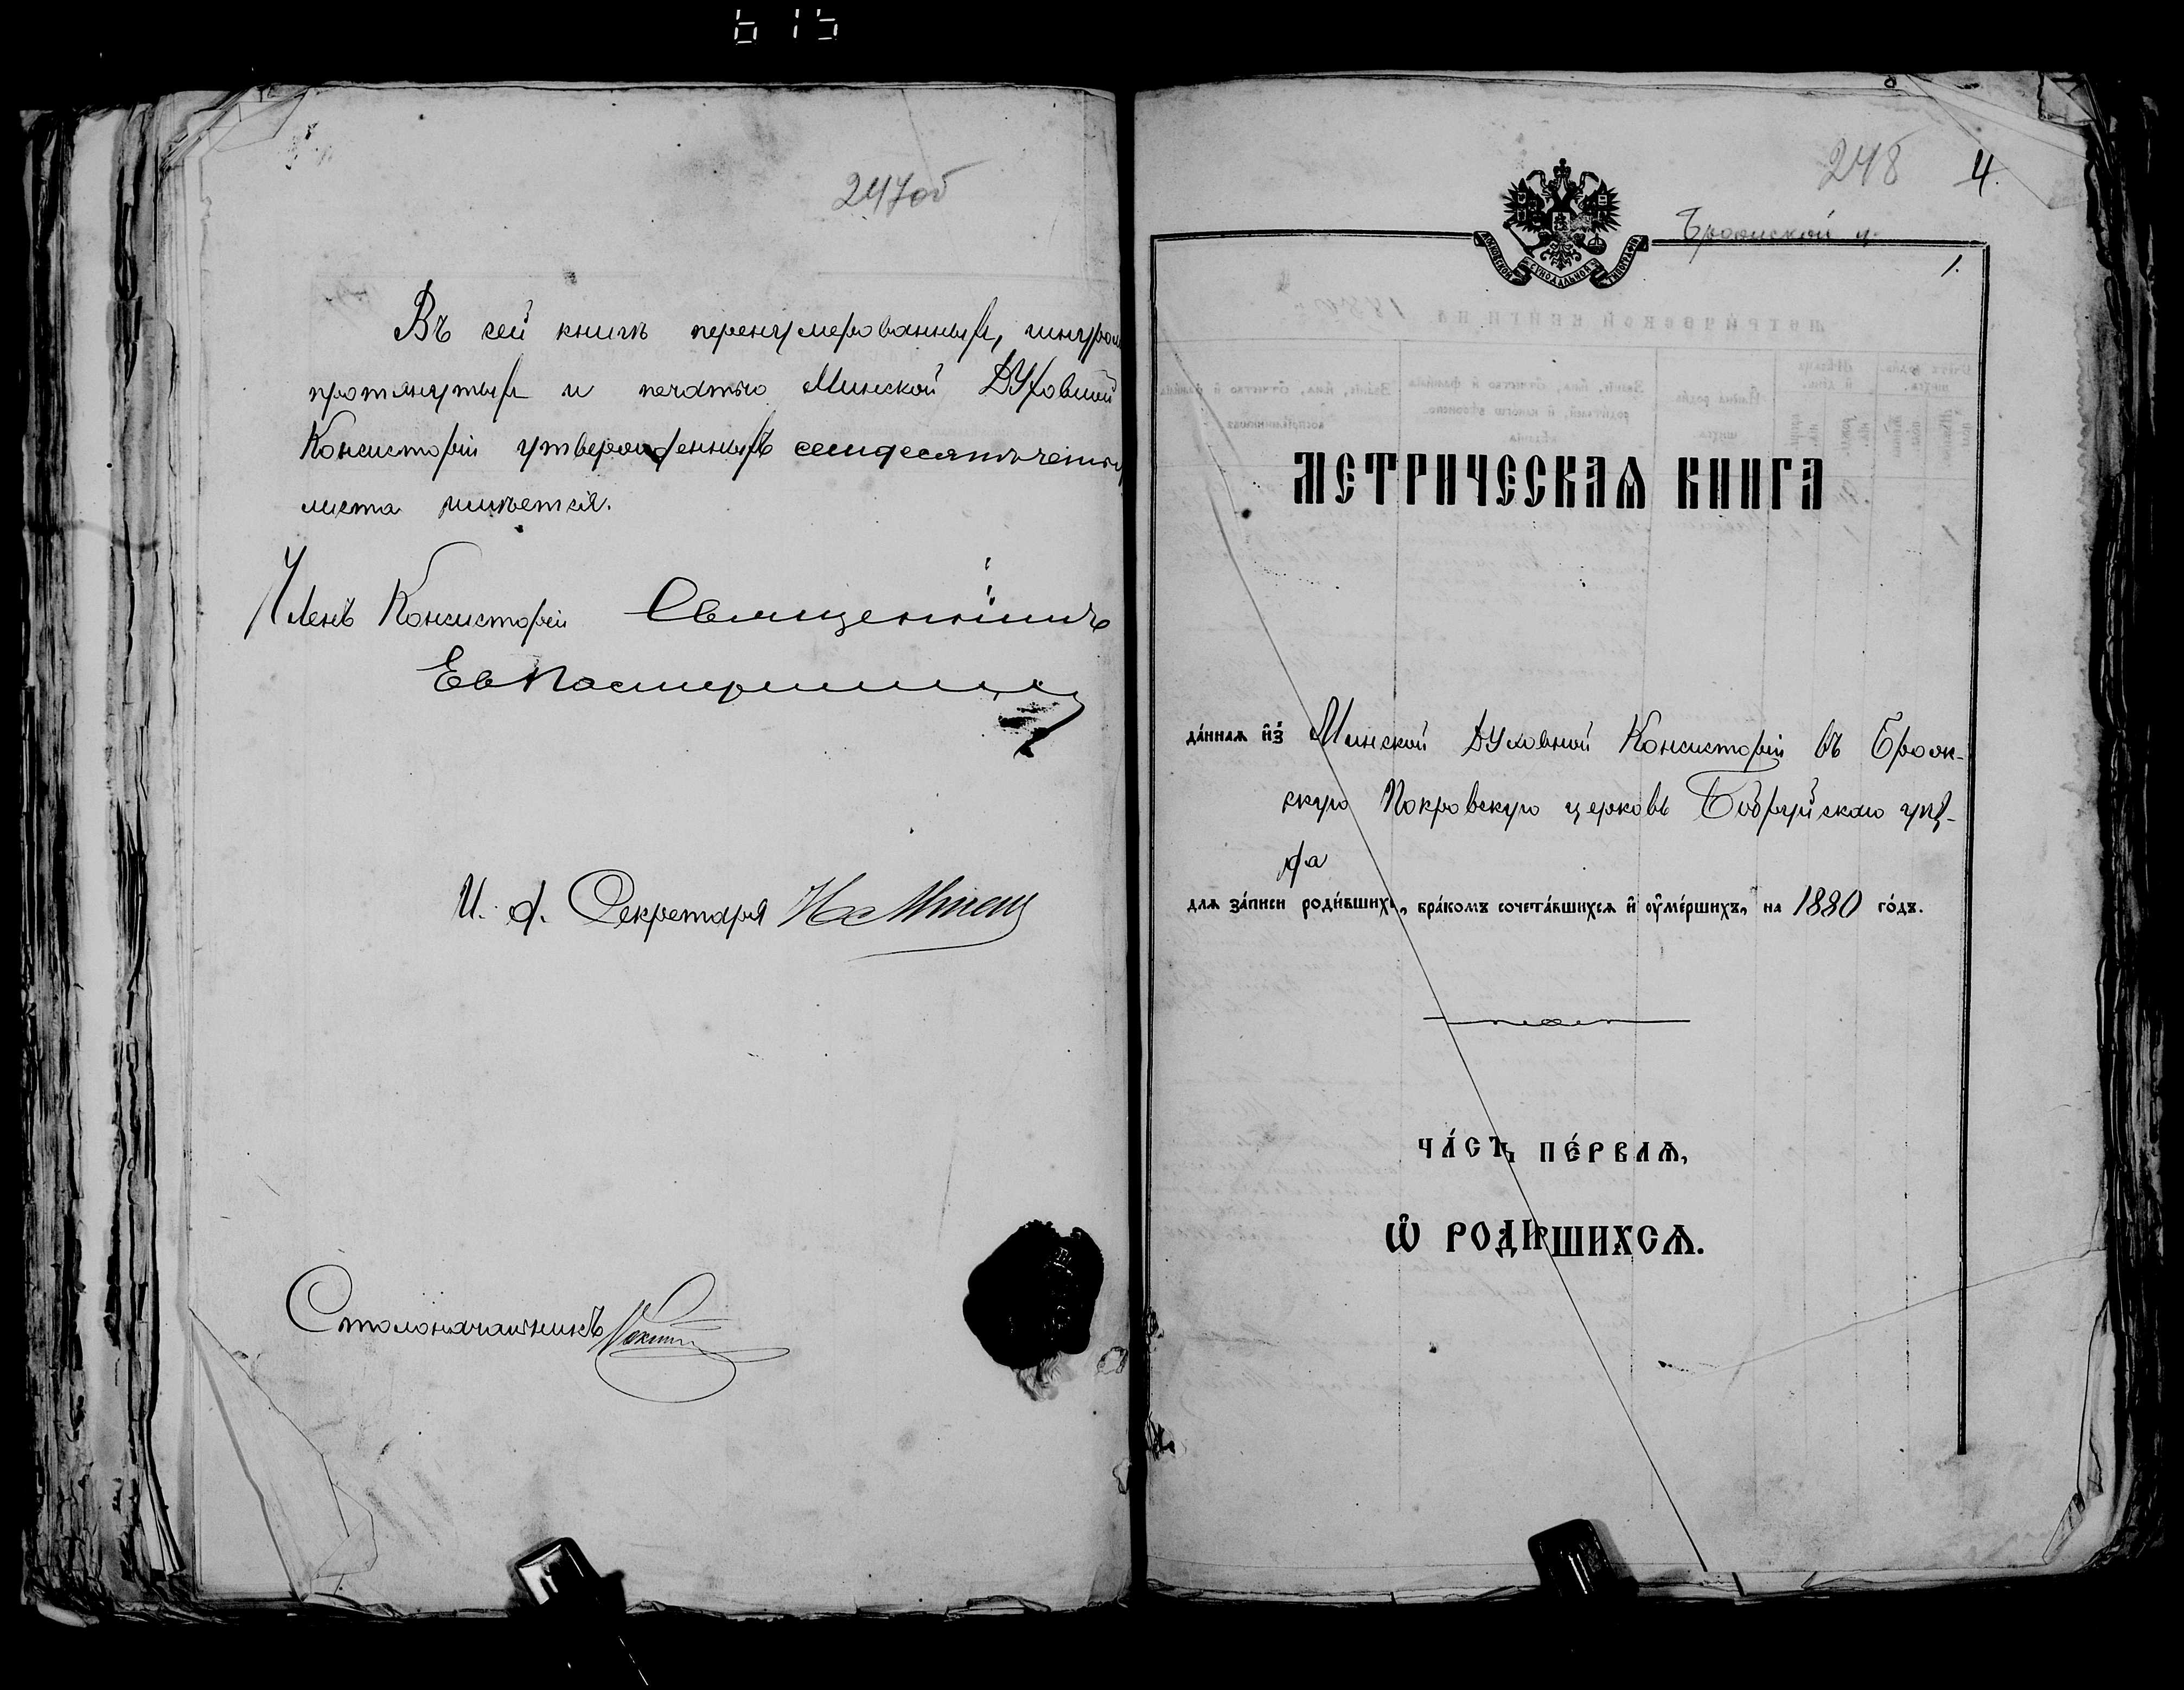 615
247об
Въ сей книгѣ перенумерованныхъ, шнуром
протянутыхъ и печатью Минской Духовной
Консисторіи утвержденныхъ семьдесятъ четыре
листа имѣется.
Членъ Консисторіи Священникъ
И. д. Секретаря
Столоначальникъ
248 4.
Бродской ц.
1.
МОСКОВСКОЙ СѴНОДАЛЬНОЙ ТИПОГРАФІИ
МЕТРИЧЕСКАѦ КНИГА
да́ннаѧ и҆з̾ Минской Духовной Консисторіи въ Брож-
скую Покровскую церковь Бобруйскаго уѣз-
да
длѧ за́писи роди́вшихсѧ, бра́комъ сочета́вшихсѧ и҆ ᲂу҆ме́ршихъ, на 1880 го́дъ.
ЧА́СТЬ ПЕ́РВАѦ,
Ѽ РОДИ́ВШИХСѦ.